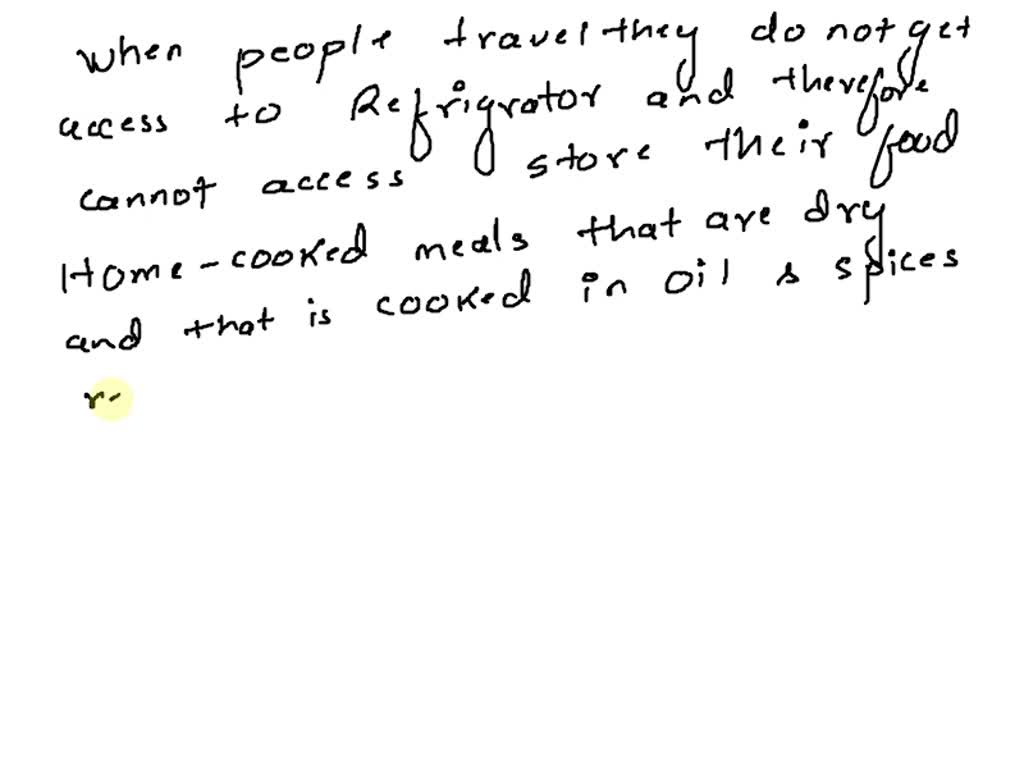 when people travel they do not get
access to Refrigrator and therefore
cannot access store their food
Home-cooked meals that are dry
and that is cooked in oil & spices
r-